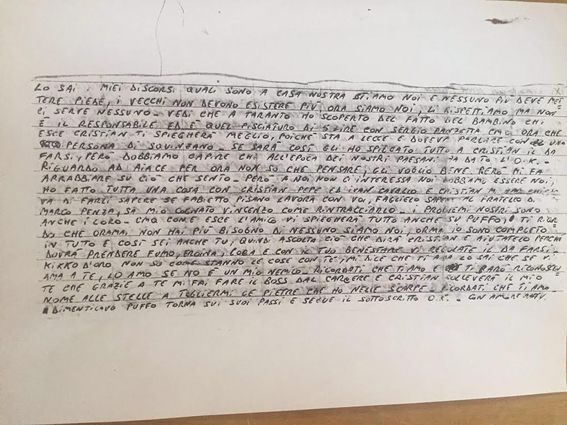 LO SAI I MIEI DISCORSI QUALI SONO A CASA NOSTRA STIAMO NOI E NESSUNO PIÙ DEVE MET
TERE PIEDE, I VECCHI NON DEVONO ESISTERE PIÙ ORA SIAMO NOI, LI RISPETTIAMO MA NON
CI SERVE NESSUNO. VEDI CHE A TARANTO HO SCOPERTO DEL FATTO DEL BAMBINO CHI
È IL RESPONSABILE ED È QUEL PISCIATURO DI CON SERGIO CMQ ORA CHE
ESCE CRISTIAN TI SPIEGHERÀ MEGLIO, POICHÉ STA A LECCE E DOVEVA PARLARE CON UNA
PERSONA DI SOVINZANO. SE SARÀ COSÌ GLI HO SPIEGATO TUTTO A CRISTIAN IL DA
FARSI, PERÒ DOBBIAMO CAPIRE CHI ALL'EPOCA DEI NOSTRI PAESANI HA DATO L'O.K.
RIGUARDO AD AIACE PER ORA NON SO CHE PENSARE, GLI VOGLIO BENE PERÒ MI FA
ARRABBIARE SU CIÒ CHE SENTO. PERÒ A NOI NON CI INTERESSA NOI DOBBIAMO ESSERE NOI,
HO FATTO TUTTA UNA COSA CON CRISTIAN PEPE ED IVAN CAVALLO E CRISTIAN
VA DI FARLI SAPERE SE FABIETTO PISANO LAVORA CON VOI, FAGLIELO SAPERE AL FRATELLO DI
MARCO PENZA, SA MIO COGNATO VINCENZO COME RINTRACCIARLO. I PROBLEMI NOSTRI SONO
ANCHE I LORO. CMQ COME ESCE L'AMICO VI SPIEGHERÀ TUTTO ANCHE SU PUFFO, TI RICOR
DO CHE ORAMAI NON HAI PIÙ BISOGNO DI NESSUNO SIAMO NOI, ORMAI IO SONO COMPLETO
IN TUTTO E COSÌ SEI ANCHE TU, QUINDI ASCOLTA CIÒ CHE DIRÀ CRISTIAN E AIUTATELO PERCHÉ
DOVRÀ PRENDERE FUMO, EROINA, COBA E CON IL TUO BENESTARE VI REGOLATE IL DA FARSI.
KIKKO D'ORO NON SO COME STANNO LE COSE CON TE, MI DICE CHE TI AMA LO SAI CHE SE
AMA A TE, LO AMO SE NO È UN MIO NEMICO. RICORDATI CHE TI AMO E TI SARÒ RICONOSCEN
TE CHE GRAZIE A TE MI FAI FARE IL BOSS DAL CARCERE E CRISTIAN SOLLEVERÀ IL MIO
NOME ALLE STELLE A TOGLIERMI LE PIETRE CHE HO NELLE SCARPE. RICORDATI CHE TI AMO.
DIMENTICAVO PUFFO TORNA SUI SUOI PASSI E SEGUE IL SOTTOSCRITTO O.K. CON AMORE